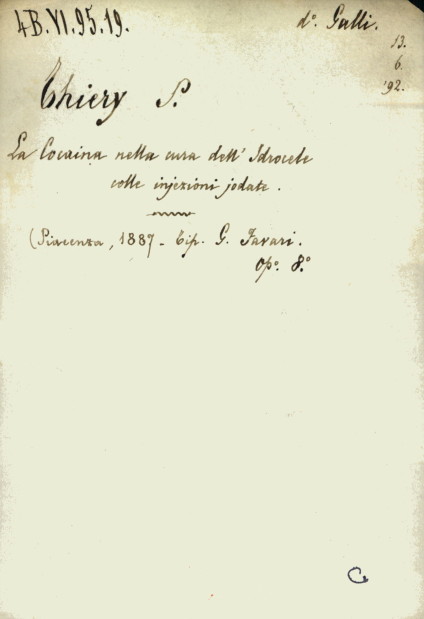 4B.VI.95.19.
d°. Galli.
13.
6.
'92.
Thiery S.
La Cocaina nella cura dell' Idrocele
colle injezioni jodate.
(Piacenza, 1887 - Tip. G. Favari.
Op°. 8.°
G